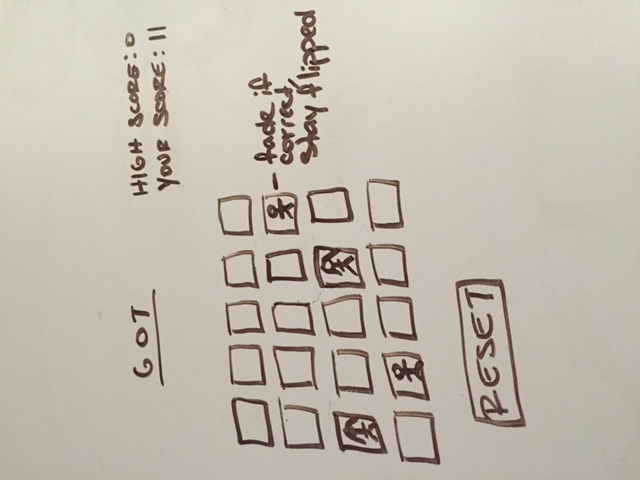 GOT
HIGH SCORE: 0
YOUR SCORE: 11
- fade if
correct,
stay flipped
RESET